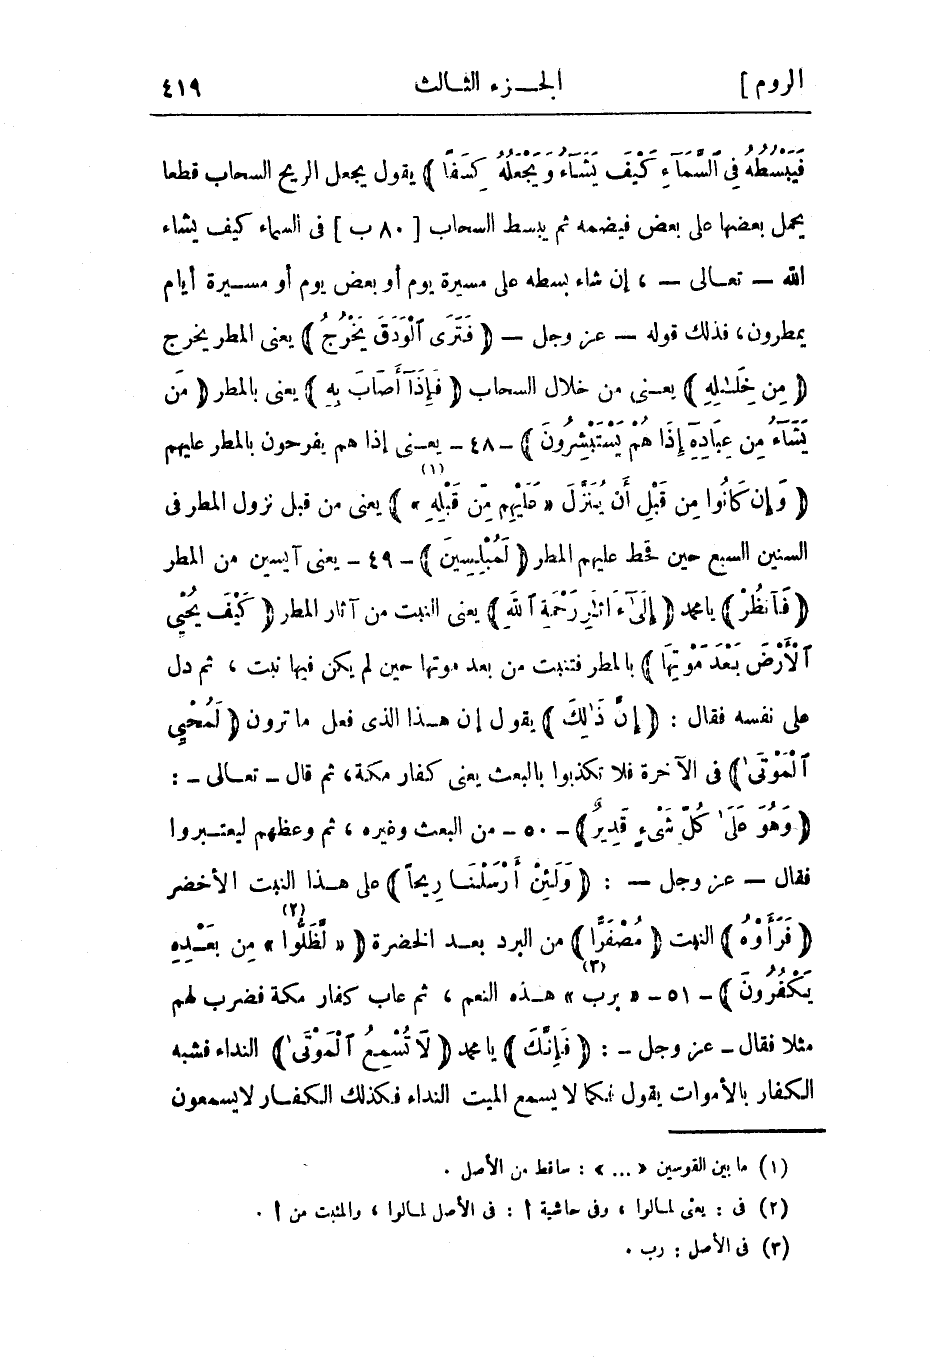 الروم] الجزء الثالث ٤١٩
فَيَبْسُطُهُ فِى ٱلسَّمَآءِ كَيْفَ يَشَآءُ وَيَجْعَلُهُ كِسَفًا ﴾ يقول يجعل الريح السحاب قطعا
يحمل بعضها على بعض فيضمه ثم يبسط السحاب [ ٨٠ ب ] فى السماء كيف يشاء
الله — تعالى — ، إن شاء بسطه على مسيرة يوم أو بعض يوم أو مسيرة أيام
يمطرون، فذلك قوله — عز وجل — ﴿ فَتَرَى ٱلْوَدْقَ يَخْرُجُ ﴾ يعنى المطر يخرج
﴿ مِن خِلَـٰلِهِ ﴾ يعنى من خلال السحاب ﴿ فَإِذَآ أَصَابَ بِهِ ﴾ يعنى بالمطر ﴿ مَن
يَشَآءُ مِن عِبَادِهِ إِذَا هُمْ يَسْتَبْشِرُونَ ﴾ - ٤٨ - يعنى إذا هم يفرحون بالمطر عليهم
﴿ وَإِن كَانُوا مِن قَبْلِ أَن يُنَزَّلَ « عَلَيْهِم مِّن قَبْلِهِ » (١) ﴾ يعنى من قبل نزول المطر فى
السنين السبع حين قحط عليهم المطر ﴿ لَمُبْلِسِينَ ﴾ - ٤٩ - يعنى آيسين من المطر
﴿ فَٱنظُرْ ﴾ يا محمد ﴿ إِلَىٰٓ ءَاثَـٰرِ رَحْمَةِ ٱللَّهِ ﴾ يعنى النبت من آثار المطر ﴿ كَيْفَ يُحْيِى
ٱلْأَرْضَ بَعْدَ مَوْتِهَا ﴾ بالمطر فتنبت من بعد موتها حين لم يكن فيها نبت ، ثم دل
على نفسه فقال : ﴿ إِنَّ ذَٰلِكَ ﴾ يقول إن هذا الذى فعل ما ترون ﴿ لَمُحْيِى
ٱلْمَوْتَىٰ ﴾ فى الآخرة فلا تكذبوا بالبعث يعنى كفار مكة، ثم قال - تعالى - :
﴿ وَهُوَ عَلَىٰ كُلِّ شَىْءٍ قَدِيرٌ ﴾ - ٥٠ - من البعث وغيره ، ثم وعظهم ليعتبروا
فقال — عز وجل — : ﴿ وَلَئِنْ أَرْسَلْنَا رِيحاً ﴾ على هذا النبت الأخضر
﴿ فَرَأَوْهُ ﴾ النبت ﴿ مُصْفَرًّا ﴾ من البرد بعد الخضرة ﴿ « لَّظَلُّوا » (٢) مِن بَعْدِهِ
يَكْفُرُونَ ﴾ - ٥١ - « برب » (٣) هذه النعم ، ثم عاب كفار مكة فضرب لهم
مثلا فقال - عز وجل - : ﴿ فَإِنَّكَ ﴾ يا محمد ﴿ لَا تُسْمِعُ ٱلْمَوْتَىٰ ﴾ النداء فشبه
الكفار بالأموات يقول فكما لا يسمع الميت النداء فكذلك الكفار لا يسمعون
(١) ما بين القوسين « ... » : ساقط من الأصل .
(٢) فى : يعنى لمالوا ، وفى حاشية أ : فى الأصل لمالوا ، والمثبت من أ .
(٣) فى الأصل : رب .